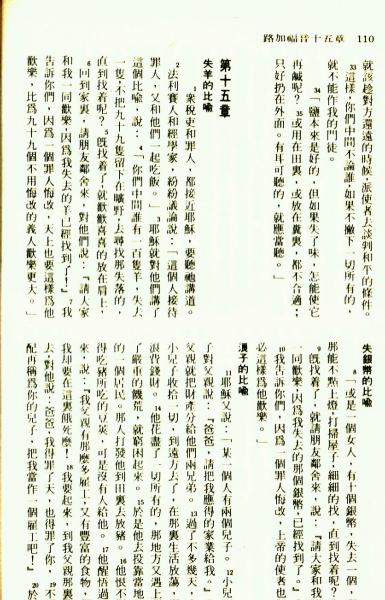 路加福音十五章 110
就該趁對方還遠的時候,派使者去談判和平的條件。
33 這樣,你們中間不論誰,如果不撇下一切所有的,
就不能作我的門徒。
34「鹽本來是好的,但如果失了味,怎能使它
再鹹呢? 35 或用在田裏,或放在糞裏,都不合適;
只好扔在外面。有耳可聽的,就應當聽。」
第十五章
失羊的比喻
1 衆稅吏和罪人,都接近耶穌,要聽祂講道。
2 法利賽人和經學家,紛紛議論說:「這個人接待
罪人,又和他們一起吃飯。」 3 耶穌就對他們講了
這個比喻,說: 4「你們中間誰有一百隻羊,失去
一隻,不把九十九隻留下在曠野,去尋找那失落的,
直到找着呢? 5 旣找着了,就歡歡喜喜的放在肩上,
6 回到家裏,請朋友鄰舍來,對他們說:『請大家
和我一同歡樂,因爲我失去的羊已經找到了!』 7 我
告訴你們,因爲一個罪人悔改,天上也要這樣爲他
歡樂,比爲九十九個不用悔改的義人歡樂更大。」
失銀幣的比喻
8「或是一個女人,有十個銀幣,失去一個,
那能不點上燈,打掃屋子,細細的找,直到找着呢?
9 旣找着了,就請朋友鄰舍來,說:『請大家和我
一同歡樂,因爲我失去的那個銀幣,已經找到了。』
10 我告訴你們,因爲一個罪人悔改,上帝的使者也
必這樣爲他歡樂。」
浪子的比喻
11 耶穌又說:「某一個人有兩個兒子。 12 小兒
子對父親說:『爸爸,請把我應得的家業給我。』
父親就把財產分給他們兩兄弟。 13 過了不多幾天,
小兒子收拾一切,到遠方去了,在那裏生活放蕩,
浪費錢財。 14 他花盡了一切所有的,那地方又遇上
了嚴重的饑荒,就窮困起來。 15 於是他去投靠當地
的一個居民。那人打發他到田裏去放豬。 16 他恨不
得吃豬所吃的豆莢,可是沒有人給他。 17 他醒悟過
來,說:『我父親有那麼多雇工,又有豐富的食物,
我却要在這裏餓死麼! 18 我要起來,到我父親那裏
去,對他說:爸爸,我得罪了天,也得罪了你, 19 不
配再稱爲你的兒子,把我當作一個雇工吧!』 20 於